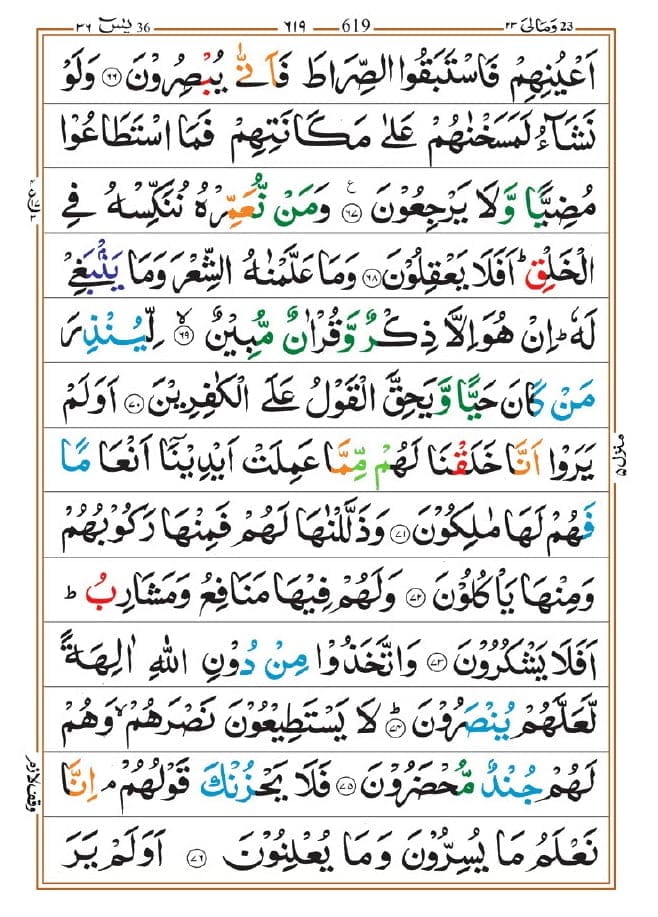 36 يٰسٓ ٣٦ ٦١٩ 619 ٢٣ وَمَالِیَ 23
اَعۡيُنِهِمۡ فَاسۡتَبَقُوا الصِّرَاطَ فَاَنّٰى يُبۡصِرُوۡنَ ﴿۶۶﴾ وَلَوۡ
نَشَآءُ لَمَسَخۡنٰهُمۡ عَلٰى مَكَانَتِهِمۡ فَمَا اسۡتَطَاعُوۡا
مُضِيًّا وَّلَا يَرۡجِعُوۡنَ ﴿۶۷﴾ وَمَنۡ نُّعَمِّرۡهُ نُنَكِّسۡهُ فِى
الۡخَلۡقِ ؕ اَفَلَا يَعۡقِلُوۡنَ ﴿۶۸﴾ وَمَا عَلَّمۡنٰهُ الشِّعۡرَ وَمَا يَنۡۢبَغِىۡ
لَهٗ ؕ اِنۡ هُوَ اِلَّا ذِكۡرٌ وَّقُرۡاٰنٌ مُّبِيۡنٌ ۙ‏ ﴿۶۹﴾ لِّيُنۡذِرَ
مَنۡ كَانَ حَيًّا وَّيَحِقَّ الۡقَوۡلُ عَلَى الۡكٰفِرِيۡنَ ﴿۷۰﴾ اَوَلَمۡ
يَرَوۡا اَنَّا خَلَقۡنَا لَهُمۡ مِّمَّا عَمِلَتۡ اَيۡدِيۡنَاۤ اَنۡعَامًا
فَهُمۡ لَهَا مٰلِكُوۡنَ ﴿۷۱﴾ وَذَلَّلۡنٰهَا لَهُمۡ فَمِنۡهَا رَكُوۡبُهُمۡ
وَمِنۡهَا يَاۡكُلُوۡنَ ﴿۷۲﴾ وَلَهُمۡ فِيۡهَا مَنَافِعُ وَمَشَارِبُ ؕ
اَفَلَا يَشۡكُرُوۡنَ ﴿۷۳﴾ وَاتَّخَذُوۡا مِنۡ دُوۡنِ اللّٰهِ اٰلِهَةً
لَّعَلَّهُمۡ يُنۡصَرُوۡنَ ؕ‏ ﴿۷۴﴾ لَا يَسۡتَطِيۡعُوۡنَ نَصۡرَهُمۡ ۙ وَهُمۡ
لَهُمۡ جُنۡدٌ مُّحۡضَرُوۡنَ ﴿۷۵﴾ فَلَا يَحۡزُنۡكَ قَوۡلُهُمۡ ۘ اِنَّا
نَعۡلَمُ مَا يُسِرُّوۡنَ وَمَا يُعۡلِنُوۡنَ ﴿۷۶﴾ اَوَلَمۡ يَرَ
منزل ۵
وقف لازم